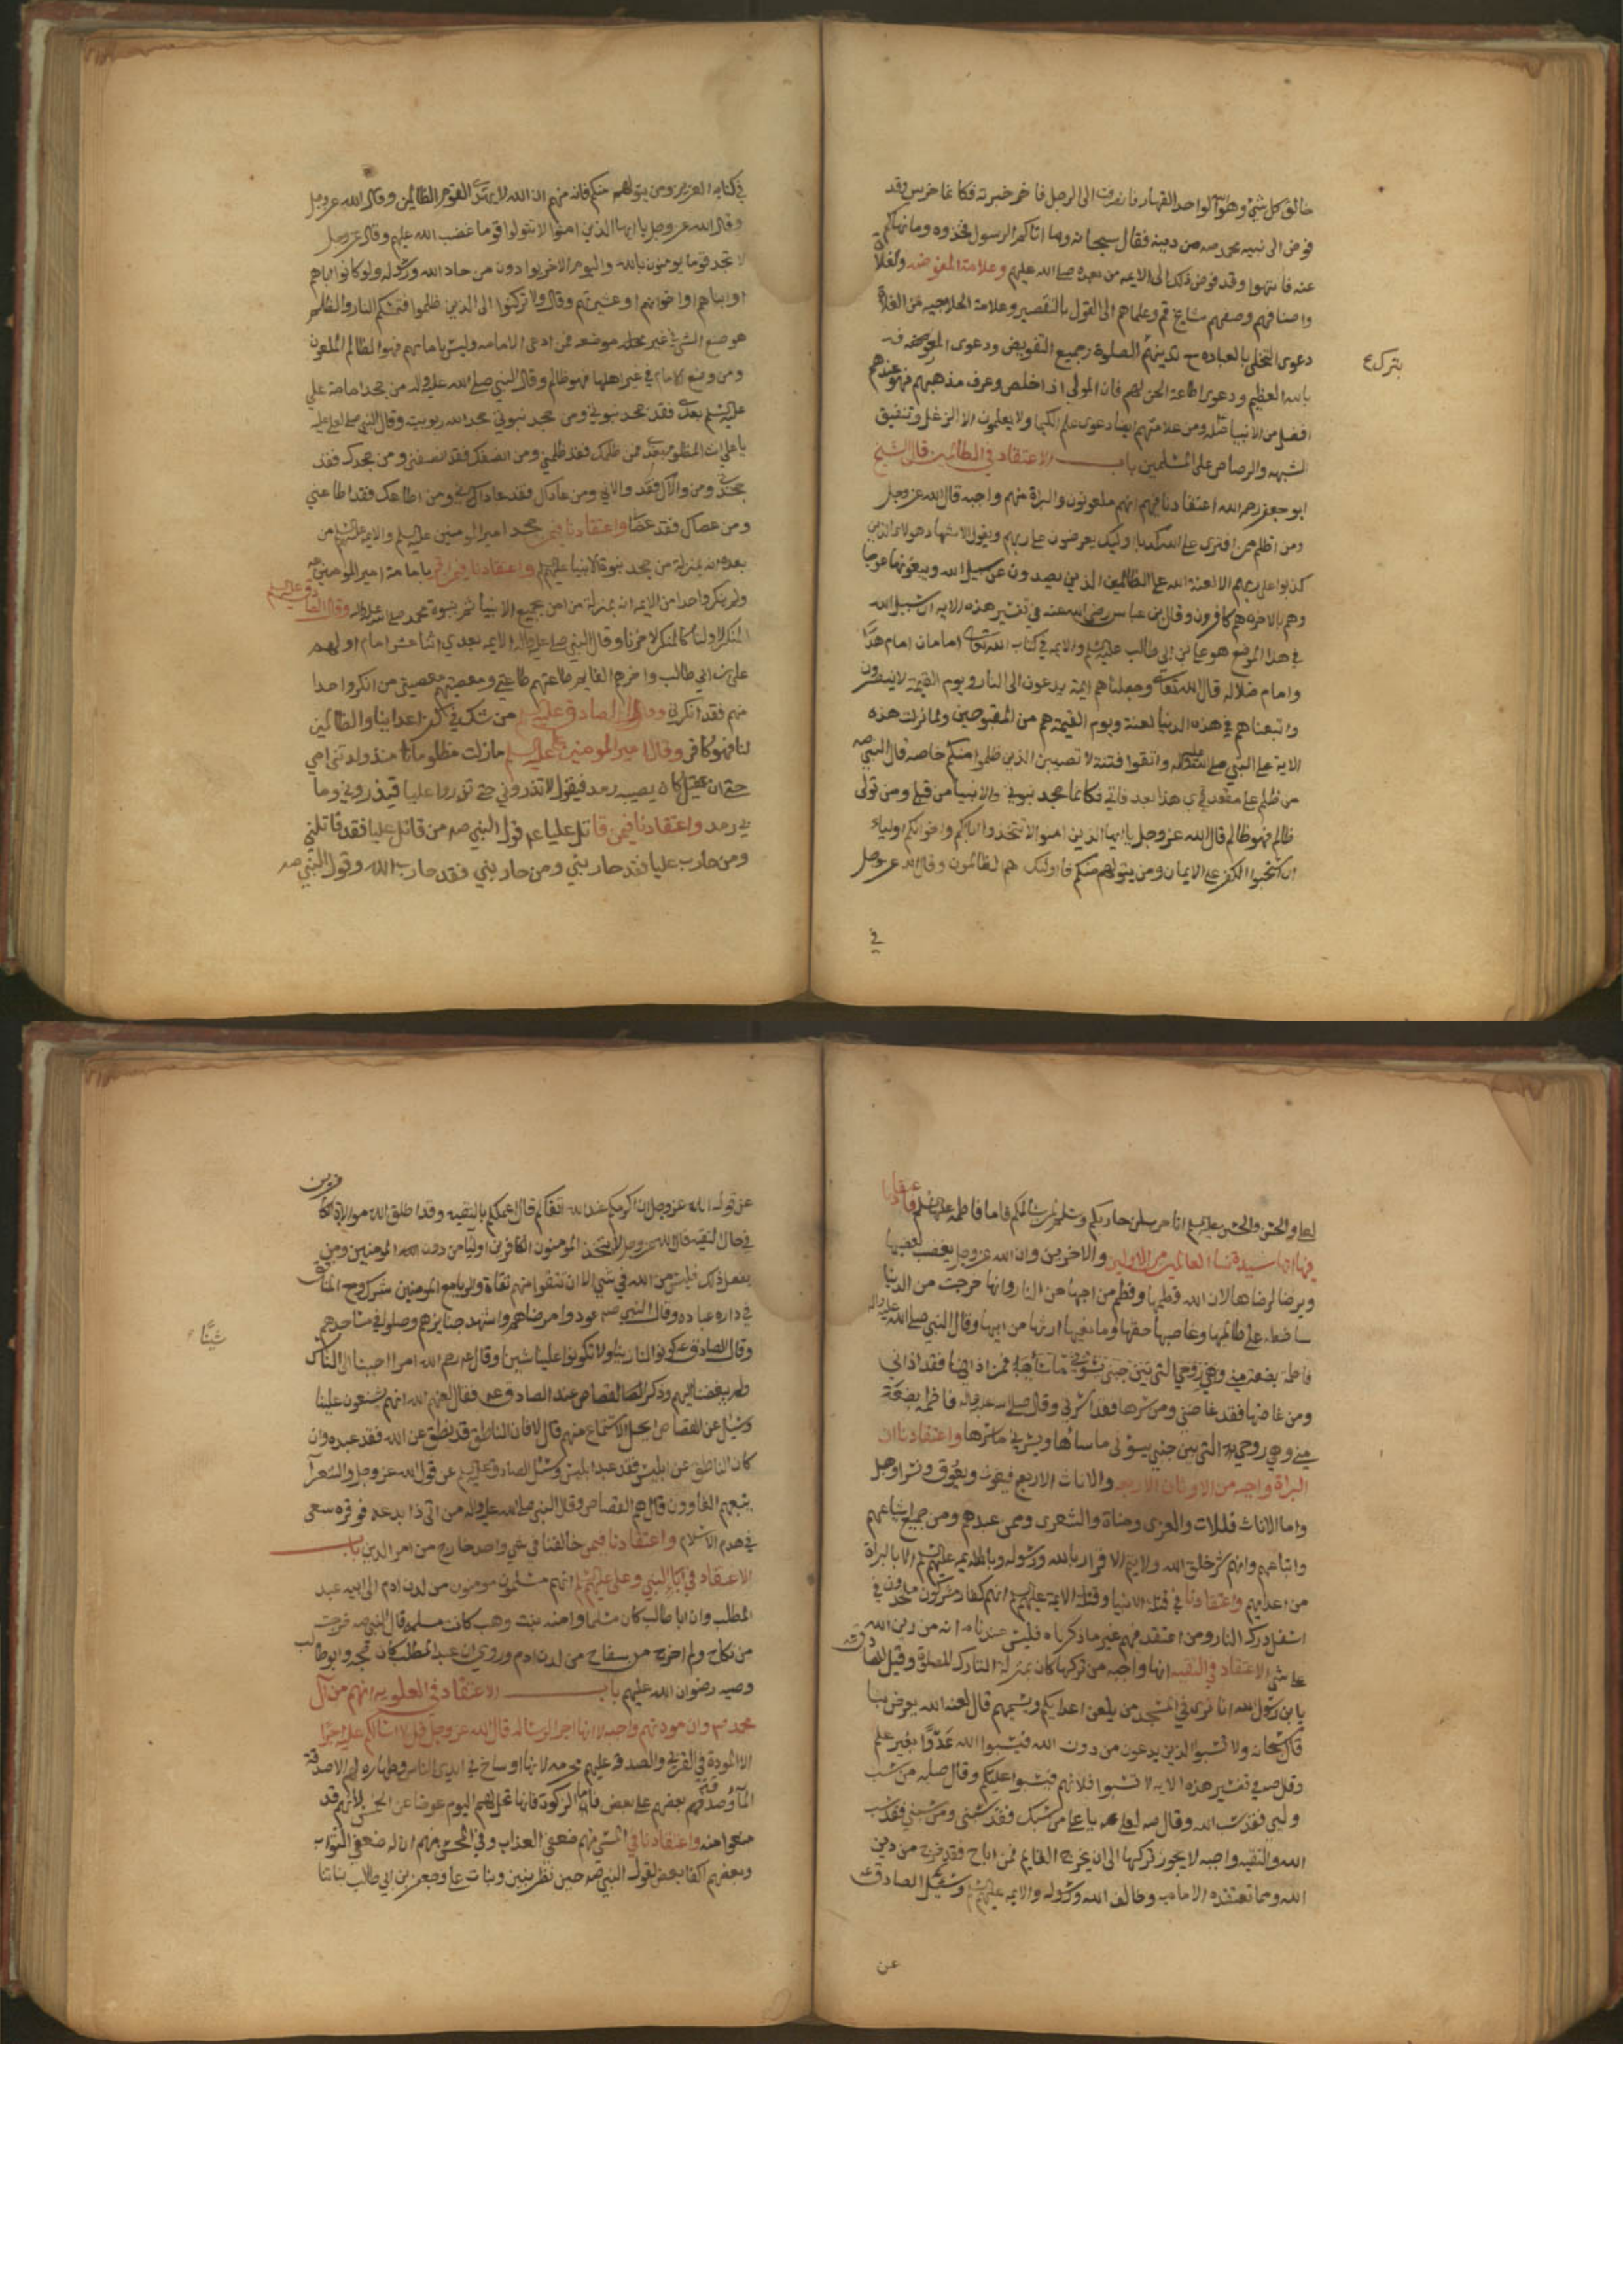 خالق كل شئ وهو الواحد القهار فانصرفت الى الرجل فاخبرته فكانما خرس وقد
فوض الى نبيه محمد صه من دينه فقال سبحانه وما اتاكم الرسول فخذوه وما نهاكم
عنه فانتهوا وقد فوض ذلك الى الايمه من بعده صلى الله عليهم وعلامة المفوضه والغلاة
واصنافهم وصفهم مشايخ قم وعلماهم الى القول بالتقصير وعلامة الحلاجيه من الغلاة
دعوى التجلى بالعباده مع تدينهم الصلوة وجميع التفويض ودعوى المعرفه
بترك ع
بالله العظيم ودعوى اطاعة الجن لهم فان المولى اذا خلص وعرف مذهبهم فهو عندهم
افضل من الانبيا ومن علامتهم ايضا دعوى علم الكيميا ولا يعلمون الا الزغل وتنفيق
الشبه والرصاص على المسلمين باب الاعتقاد في الظالمين قال الشيخ
ابو جعفر رحمه الله اعتقادنا فيهم انهم ملعونون والبراة منهم واجبه قال الله عز وجل
ومن اظلم ممن افترى على الله كذبا اوليك يعرضون على ربهم ويقول الاشهاد هولاء الذين
كذبوا على ربهم الا لعنة الله على الظالمين الذين يصدون عن سبيل الله ويبغونها عوجا
وهم بالاخره هم كافرون وقال بن عباس رضى الله عنه في تفسير هذه الايه ان سبيل الله
في هذا الموضع هو على بن ابى طالب عليه السلم والايمه في كتاب الله تعالى امامان امام هدا
وامام ضلاله قال الله تعالى وجعلناهم ايمة يدعون الى النار ويوم القيمة لا ينصرون
واتبعناهم في هذه الدنيا لعنة ويوم القيمة هم من المقبوحين ولما نزلت هذه
الاية على النبي صلى الله عليه واتقوا فتنة لا تصيبن الذين ظلموا منكم خاصه قال النبي صه
من ظلم عليا مقعدي هذا بعد وفاتي فكانما جحد نبوتي والانبيا من قبلي ومن تولى
ظالم فهو ظالم قال الله عز وجل يا ايها الذين امنوا لا تتخذوا اباكم واخوانكم اولياء
ان استحبوا الكفر على الايمان ومن يتولهم منكم فاوليك هم الظالمون وقال الله عز وجل
في
في كتابه العزيز ومن يتولهم منكم فانه منهم ان الله لا يهدى القوم الظالمين وقال الله عز وجل
وقال الله عز وجل يا ايها الذين امنوا لا تتولوا قوما غضب الله عليهم وقال عز وجل
لا تجد قوما يومنون بالله واليوم الاخر يوادون من حاد الله ورسوله ولو كانوا اباهم
او ابناهم او اخوانهم او عشيرتهم وقال ولا تركنوا الى الذين ظلموا فتمسكم النار والظلم
هو وضع الشئ في غير محله موضعه فمن ادعى الامامه وليس بامامهم فهو الظالم الملعون
ومن وضع الامامة في غير اهلها فهو ظالم وقال النبي صلى الله عليه واله من جحد امامة علي
عليه السلم بعدى فقد جحد نبوتي ومن جحد نبوتي جحد الله ربوبيته وقال النبي صلى الله عليه
يا علي انت المظلوم بعدى فمن ظلمك فقد ظلمني ومن انصفك فقد انصفني ومن جحدك فقد
جحدنى ومن والاك فقد والاني ومن عاداك فقد عاداني ومن اطاعك فقد اطاعني
ومن عصاك فقد عصانى واعتقادنا فيمن جحد امير المومنين عليه السلم والايمه عليهم السلم من
بعده انه بمنزلة من جحد نبوة الانبيا عليهم واعتقادنا فيمن اقر بامامة امير المومنين
ولم ينكر واحدا من الايمه انه بمنزلة من امن بجميع الانبيا ثم بنبوة محمد صلى الله عليه واله وقال الصادق عليه السلم
المنكر لاولنا كالمنكر لاخرنا وقال النبي صلى الله عليه واله الايمه بعدي اثنا عشر امام اولهم
على بن ابي طالب واخرهم القايم طاعتهم طاعتي ومعصيتهم معصيتي من انكر واحدا
منهم فقد انكرني وقال الصادق عليه السلم من شك في كفر اعداينا والظالمين
لنا فهو كافر وقال امير المومنين عليه السلم ما زلت مظلوما منذ ولدتنى امى
حتى ان عقيل كان يصيبه رمد فيقول لا تذروني حتى تذروا عليا فيذروني وما
بي رمد واعتقادنا فيمن قاتل عليا عم قول النبي صه من قاتل عليا فقد قاتلني
ومن حارب عليا فقد حاربني ومن حاربني فقد حارب الله وقول النبي صه
لعلى والحسن والحسين عليهم السلم انا حرب لمن حاربكم وسلم لمن سالمكم فاما فاطمه عليها السلم فاعتقادنا
فيها انها سيدة نساء العالمين من الاولين والاخرين وان الله عز وجل يغضب لغضبها
ويرضا لرضاها لان الله فطمها وفطم من احبها من النار وانها خرجت من الدنيا
ساخطه على ظالمها وغاصبها حقها وما نعيها ارثها من ابيها وقال النبي صلى الله عليه واله
فاطمه بضعة مني وهي روحي التي بين جنبى فمن اذاها فقد اذاني
ومن غاضها فقد غاضني ومن سرها فقد سرني وقال صلى الله عليه واله فاطمه بضعة
مني وهي روحي التي بين جنبي يسؤنى ما ساها ويسرني ما سرها واعتقادنا ان
البراة واجبه من الاوثان الاربعه والاناث الاربع فيغوث ويعوق ونسرا وهبل
واما الاناث فاللات والعزى ومناة والشعرى وممن عبدهم ومن جميع اشياعهم
واتباعهم وانهم شر خلق الله ولا يتم الاقرار بالله ورسوله وبالايمه عليهم السلم الا بالبراة
من اعدايهم واعتقادنا في قتلة الانبيا وقتلة الايمة عليهم السلم انهم كفار مشركون مخلدون في
اسفل درك النار ومن اعتقد فيهم غير ما ذكرناه فليس عندنا انه من دين الله
على شئ الاعتقاد في التقيه انها واجبه من تركها كان بمنزلة التارك للصلوة وقيل للصادق عه
يا بن رسول الله انا نرى في المسجد من يلعن اعدايكم ويشتمهم قال لعنه الله يعرض بنا
قال سبحانه ولا تسبوا الذين يدعون من دون الله فيسبوا الله عدوا بغير علم
وقال صه في تفسير هذه الايه لا تسبوا فلانهم فيسبوا عليكم وقال صه من سب
وليي فقد سب الله وقال صه لعلي عم يا علي من سبك فقد سبنى ومن سبني فقد سب
الله والتقيه واجبه لا يجوز تركها الى ان يخرج القايم فمن اباح فقد خرج من دين
الله ومما تعتقده الاماميه وخالف الله ورسوله والايمه عليهم السلم وسئل الصادق
عن
عن قول الله عز وجل ان اكرمكم عند الله اتقاكم قال اعملكم بالتقيه وقد اطلق الله موالاة الكافرين
في حال التقيه قال الله عز وجل لا يتخذ المومنون الكافرين اوليا من دون المومنين ومن
يفعل ذلك فليس من الله في شي الا ان تتقوا منهم تقاة والريا مع المومنين شرك ومع المنافق
في داره عباده وقال النبي صه عودوا مرضاهم واشهدوا جنايزهم وصلوا في مساجدهم
وقال الصادق عه كونوا لنا زينا ولا تكونوا علينا شينا وقال عم رحم الله امرا حببنا الى الناس
شينًا ع
ولم يبغضنا اليهم وذكر القصاص عند الصادق عم فقال لعنهم الله انهم يشنعون علينا
وسئل عن القصاص ايحل الاستماع منهم قال لا فان الناطق قد ينطق عن الله فقد عبده وان
كان الناطق عن ابليس فقد عبد ابليس وسئل الصادق عليه السلم عن قول الله عز وجل والشعرآ
يتبعهم الغاوون قال هم القصاص وقال النبي صلى الله عليه واله من اتى ذا بدعه فوقره سعى
في هدم الاسلام واعتقادنا فيمن خالفنا في شي واحد خارج من امر الدين باب
الاعتقاد في اباء النبي وعلى عليهم السلم انهم مسلمون مومنون من لدن ادم الى ابيه عبد
المطلب وان ابا طالب كان مسلما وامنه بنت وهب كانت مسلمه قال النبي صه خرجت
من نكاح ولم اخرج من سفاح من لدن ادم وروي ان عبد المطلب كان حجة وابو طالب
وصيه رضوان الله عليهم باب الاعتقاد في العلويه انهم من آل
محمد صه وان مودتهم واجبه لانها اجر الرساله قال الله عز وجل قل لا اسالكم عليه اجرا
الا المودة في القربي والصدقه عليهم محرمه لانها اوساخ في ايدي الناس وطهاره لهم الا صدقة
الماء وصدقتهم بعضهم على بعض فاما الزكوة فانها تحل لهم اليوم عوضا عن الخمس لانهم قد
منعوا منه واعتقادنا في المسئ منهم ضعف العذاب وفي المحسن منهم ان له ضعف الثواب
وبعضهم اكفا بعض لقول النبي صه حين نظر بنين وبنات على وجعفر بن ابي طالب بناتنا